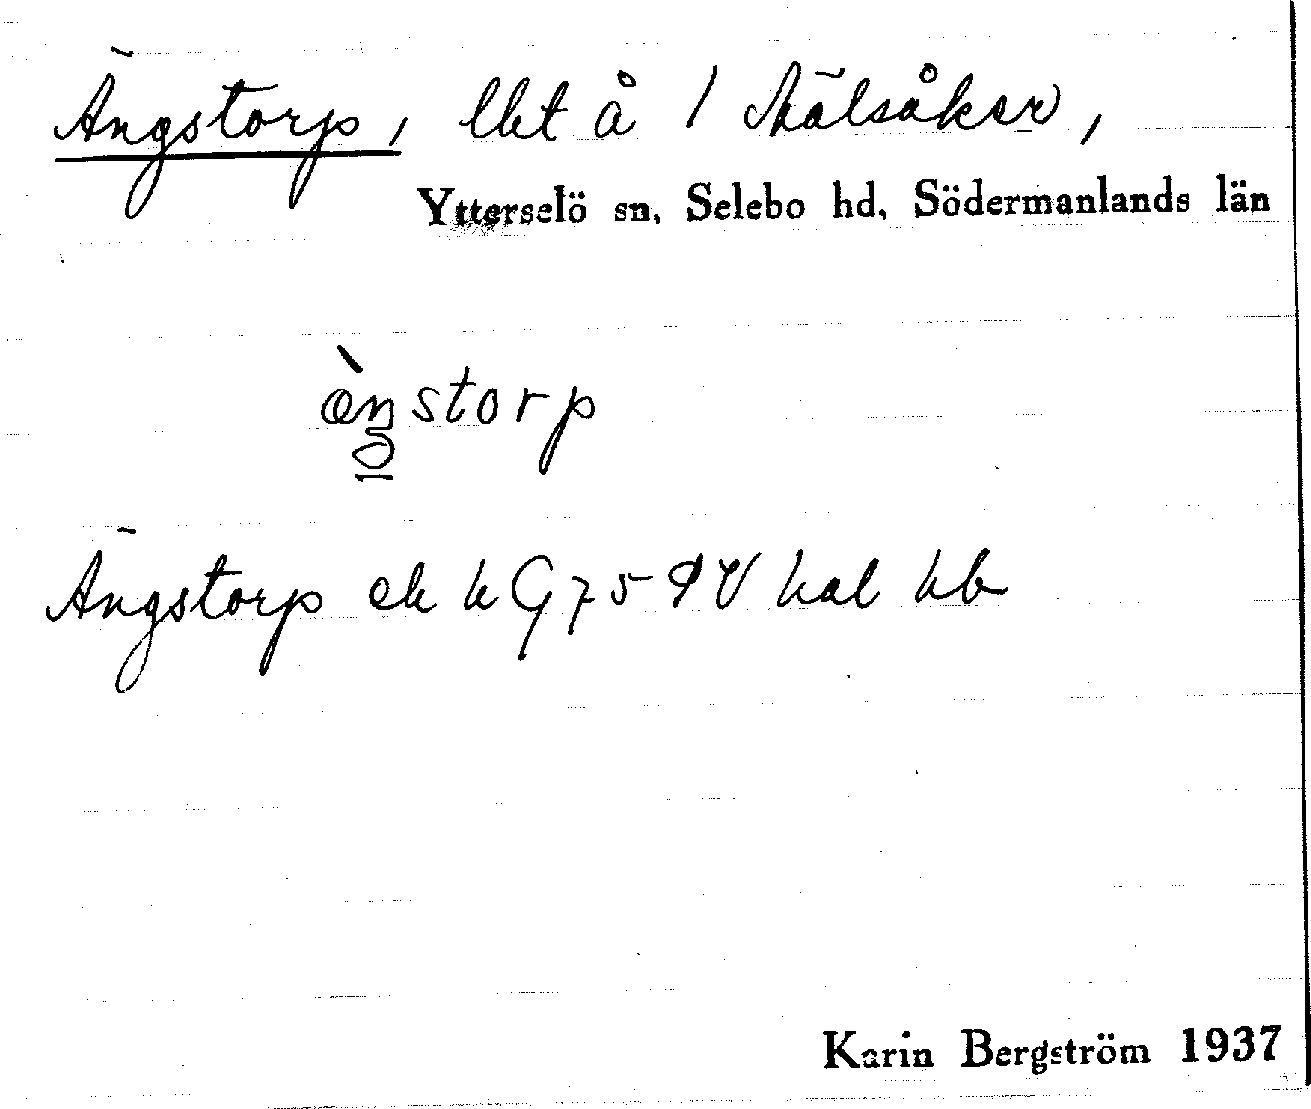 Ängstorp, lht å 1 Mälsåker,
Ytterselö sn, Selebo hd, Södermanlands län
æ̀ŋstorp
Ängstorp ek k G 75 9 V hal hb
Karin Bergström 1937